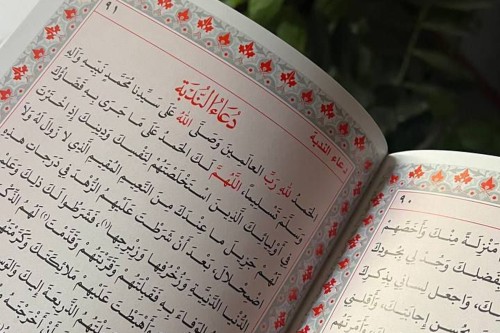 ٩١
دعاء الندبة
دُعَاءُ النُّدْبَة
الحَمْدُ للهِ رَبِّ العالَمِينَ وَصَلَّى اللهُ عَلى سَيِّدِنا مُحَمَّدٍ نَبِيِّهِ وَآلِهِ
وَسَلَّمَ تَسْلِيماً، اللّهُمَّ لَكَ الحَمْدُ عَلى ما جَرى بِهِ قَضاؤُكَ
فِي أَوْلِيائِكَ الَّذِينَ اسْتَخْلَصْتَهُمْ لِنَفْسِكَ وَدِينِكَ إِذِ اخْتَرْتَ
لَهُمْ جَزِيلَ ما عِنْدَكَ مِنَ النَّعِيمِ المُقِيمِ الَّذِي لا زَوالَ لَهُ وَلا
اضْمِحْلالَ، بَعْدَ أَنْ شَرَطْتَ عَلَيْهِمُ الزُّهْدَ فِي دَرَجاتِ هذِهِ
الدُّنْيا الدَّنِيَّةِ وَزُخْرُفِها وَزِبْرِجِها(١) فَشَرَطُوا لَكَ ذلِكَ وَعَلِمْتَ
الوَفاءَ بِهِ فَقَبِلْتَهُمْ وَقَرَّبْتَهُمْ وَقَدَّمْتَ(٢) لَهُمُ
وَأَهْبَطْتَ عَلَيْهِمْ مَلائِكَتَكَ
الذَّرِيعَةَ
٩٠
مَنْزِلَةً مِنْكَ وَأَخَصِّهِمْ
وَجُدْ لِي بِجُودِكَ
وَاجْعَلْ لِسانِي بِذِكْرِكَ
إِجابَتِكَ، وَأَقِلْنِي